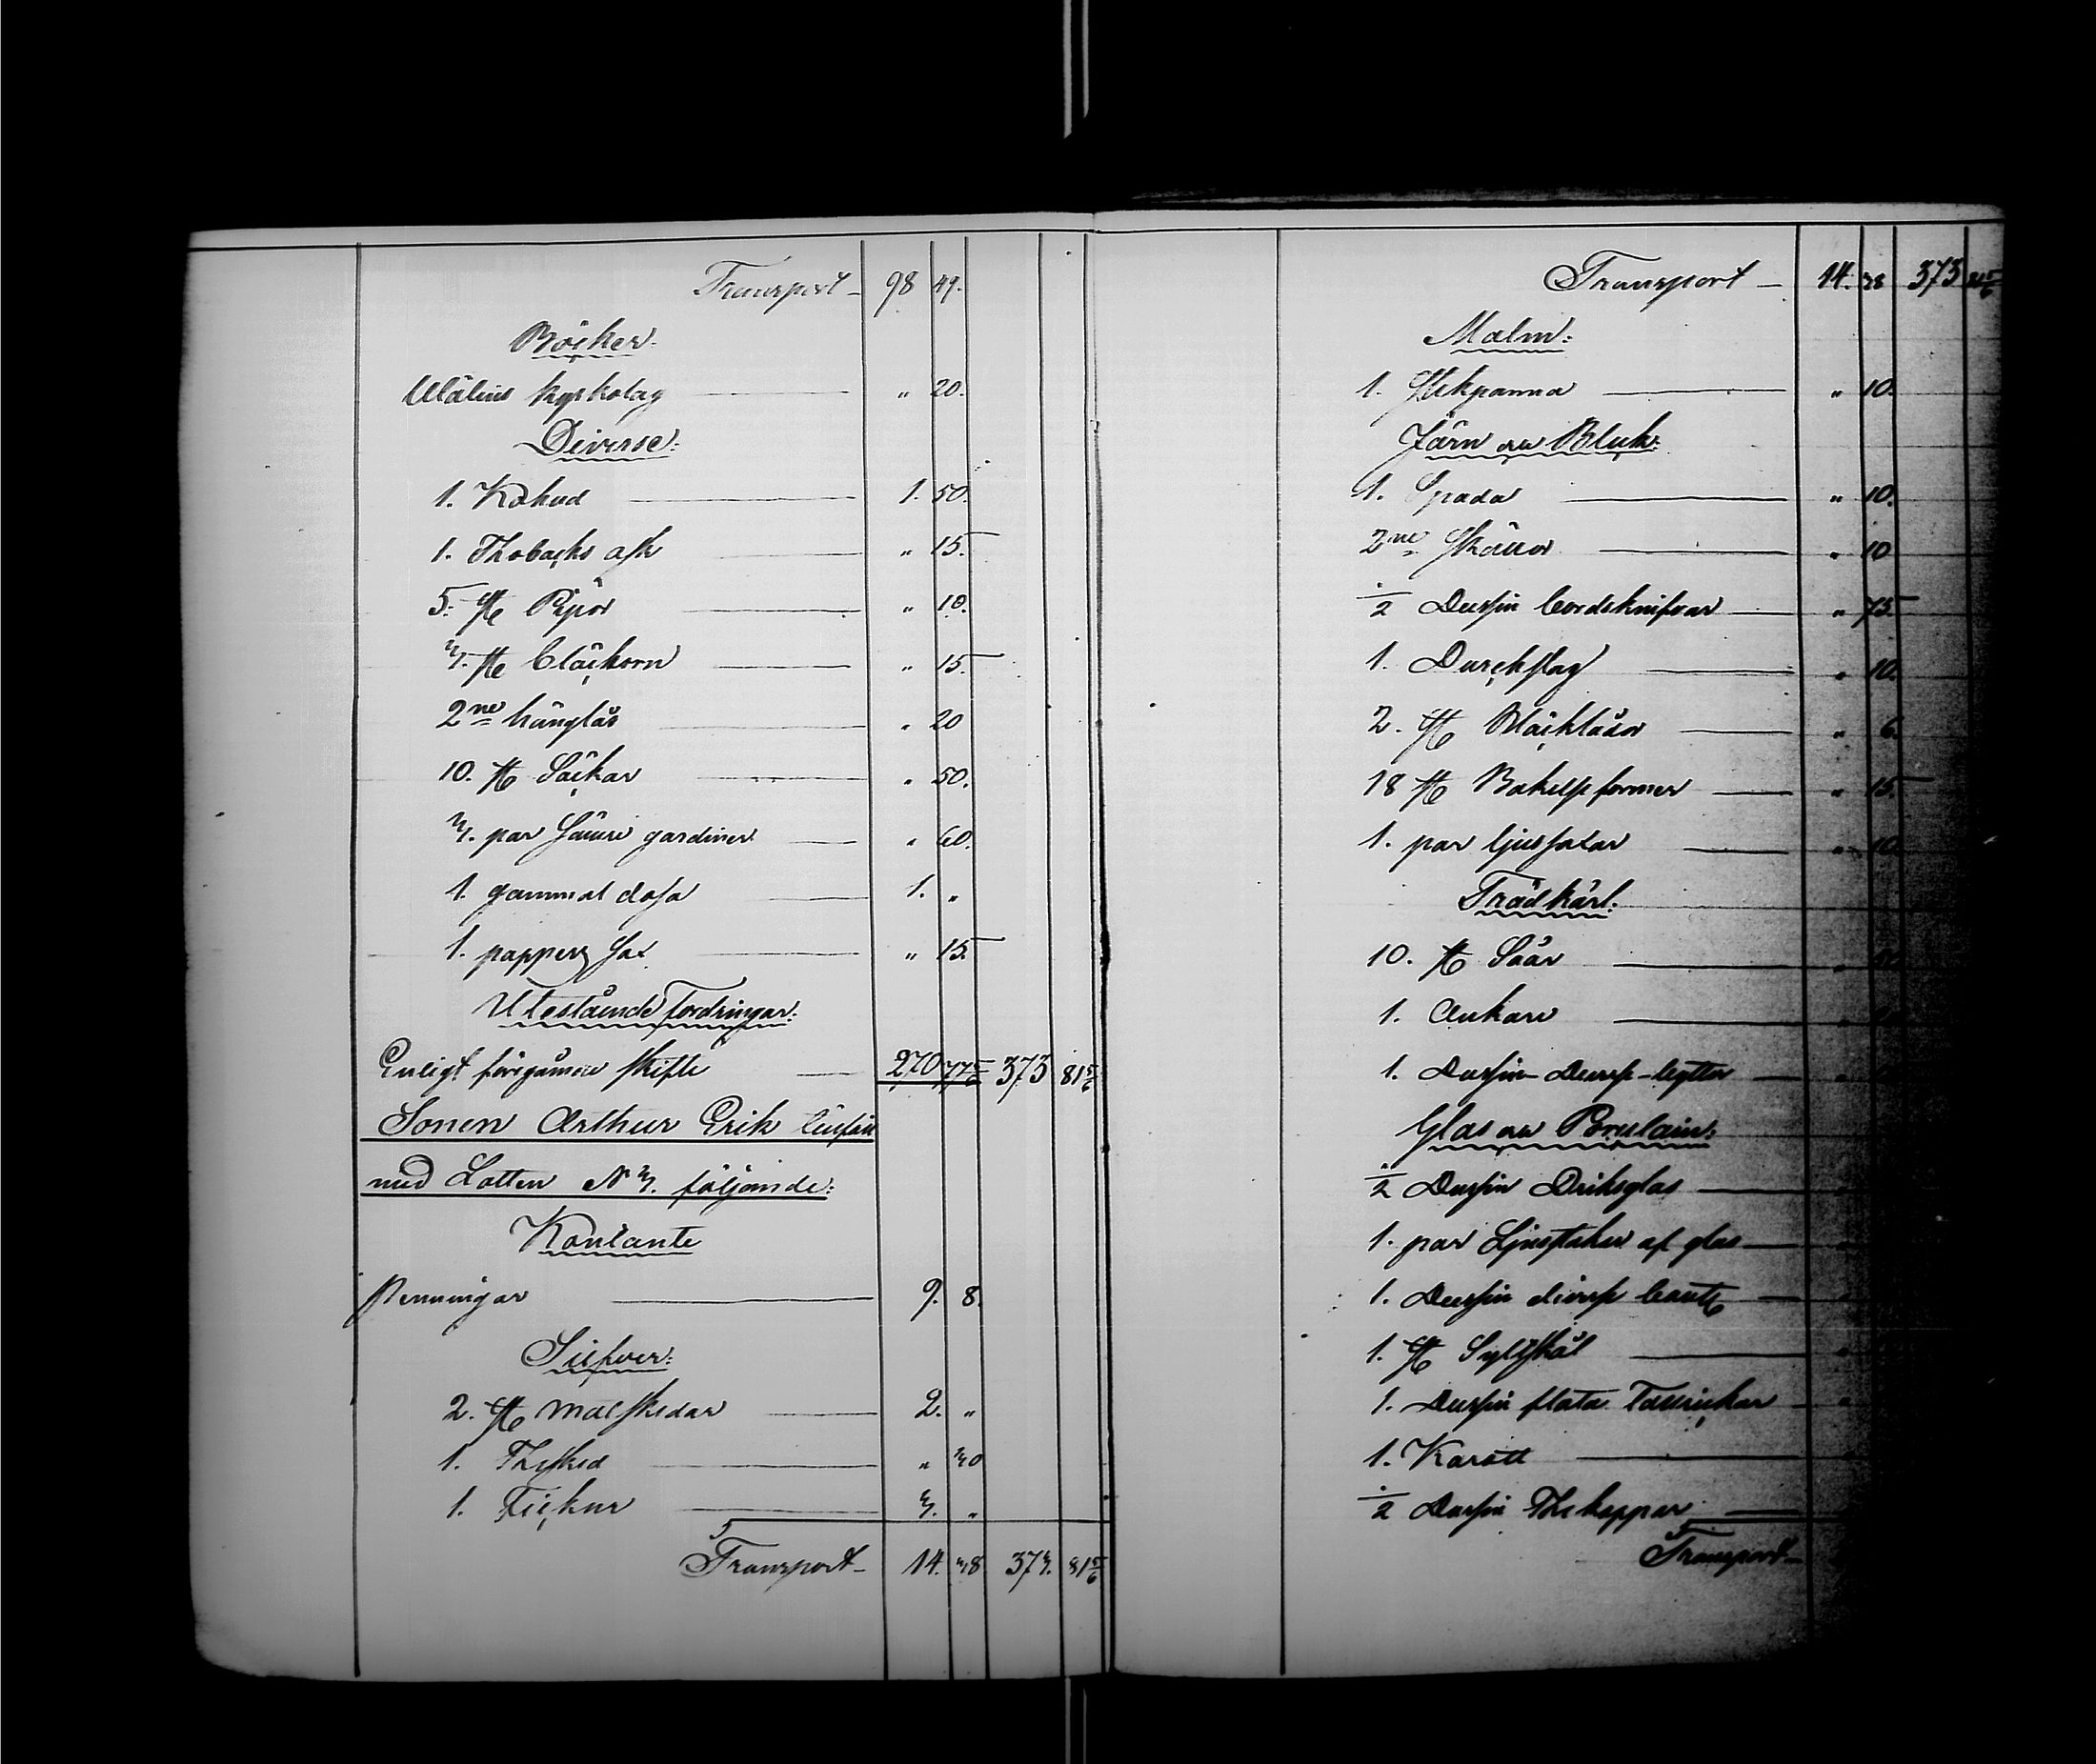 Transport 98 49.
Böcker.
kyrkolag " 20.
Diverse:
1. Kohud 1. 50.
1. Thobacks ask " 15.
5. St Pipor " 10.
3. St bläckhorn " 15.
2ne hänglås " 20
10. St Säckar " 50.
3. par gardiner " 60.
1. gammal dosa 1. "
1. pappers sax " 15.
Utestående Fordringar:
Enligt föregående skifte 270 77 5/6 373 81 5/6
Sonen Arthur Erik
med Lotten N 3. följande:
Kontante
Penningar 9. 8.
Silfver:
2. St matskedar 2. "
1. Thesked " 40
1. Fickur 3. "
Transport 14. 48 373. 81 5/6
Transport 14. 48 373 81 5/6
Malm:
1. Stekpanna " 10.
Järn och Bleck:
1. Spada " 10.
2ne " 10
1/2 Dussin bordsknifvar " 75.
1. Durchslag " 10.
2. St " 6.
18 St Bakelse former " 15.
1. par ljussaxar " 10.
Trädkärl:
10. St Såar
1. Ankare
1. Dussin byttor
Glas och Porslain:
1/2 Dussin Driksglas
1. par Ljusstakar af glas
1. Dussin diverse
1. St Syltskål
1. Dussin flata Tallrickar
1. Karott
1/2 Dussin The koppar
Transport